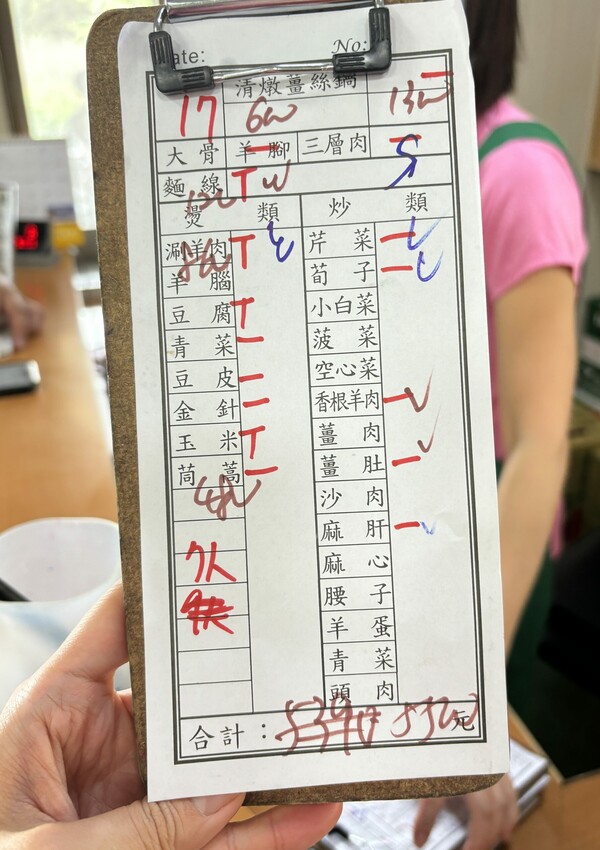 ate: No:
清燉薑絲鍋
17
大骨 羊腳 三層肉
麵線
燙類 炒類
涮羊肉 芹菜
羊腦 荀子
豆腐 小白菜
青菜 菠菜
豆皮 空心菜
金針 香根羊肉
玉米 薑肉
茼蒿 薑肚
沙肉
麻肝
麻心
腰子
羊蛋
青菜
頭肉
7人
合計： 元